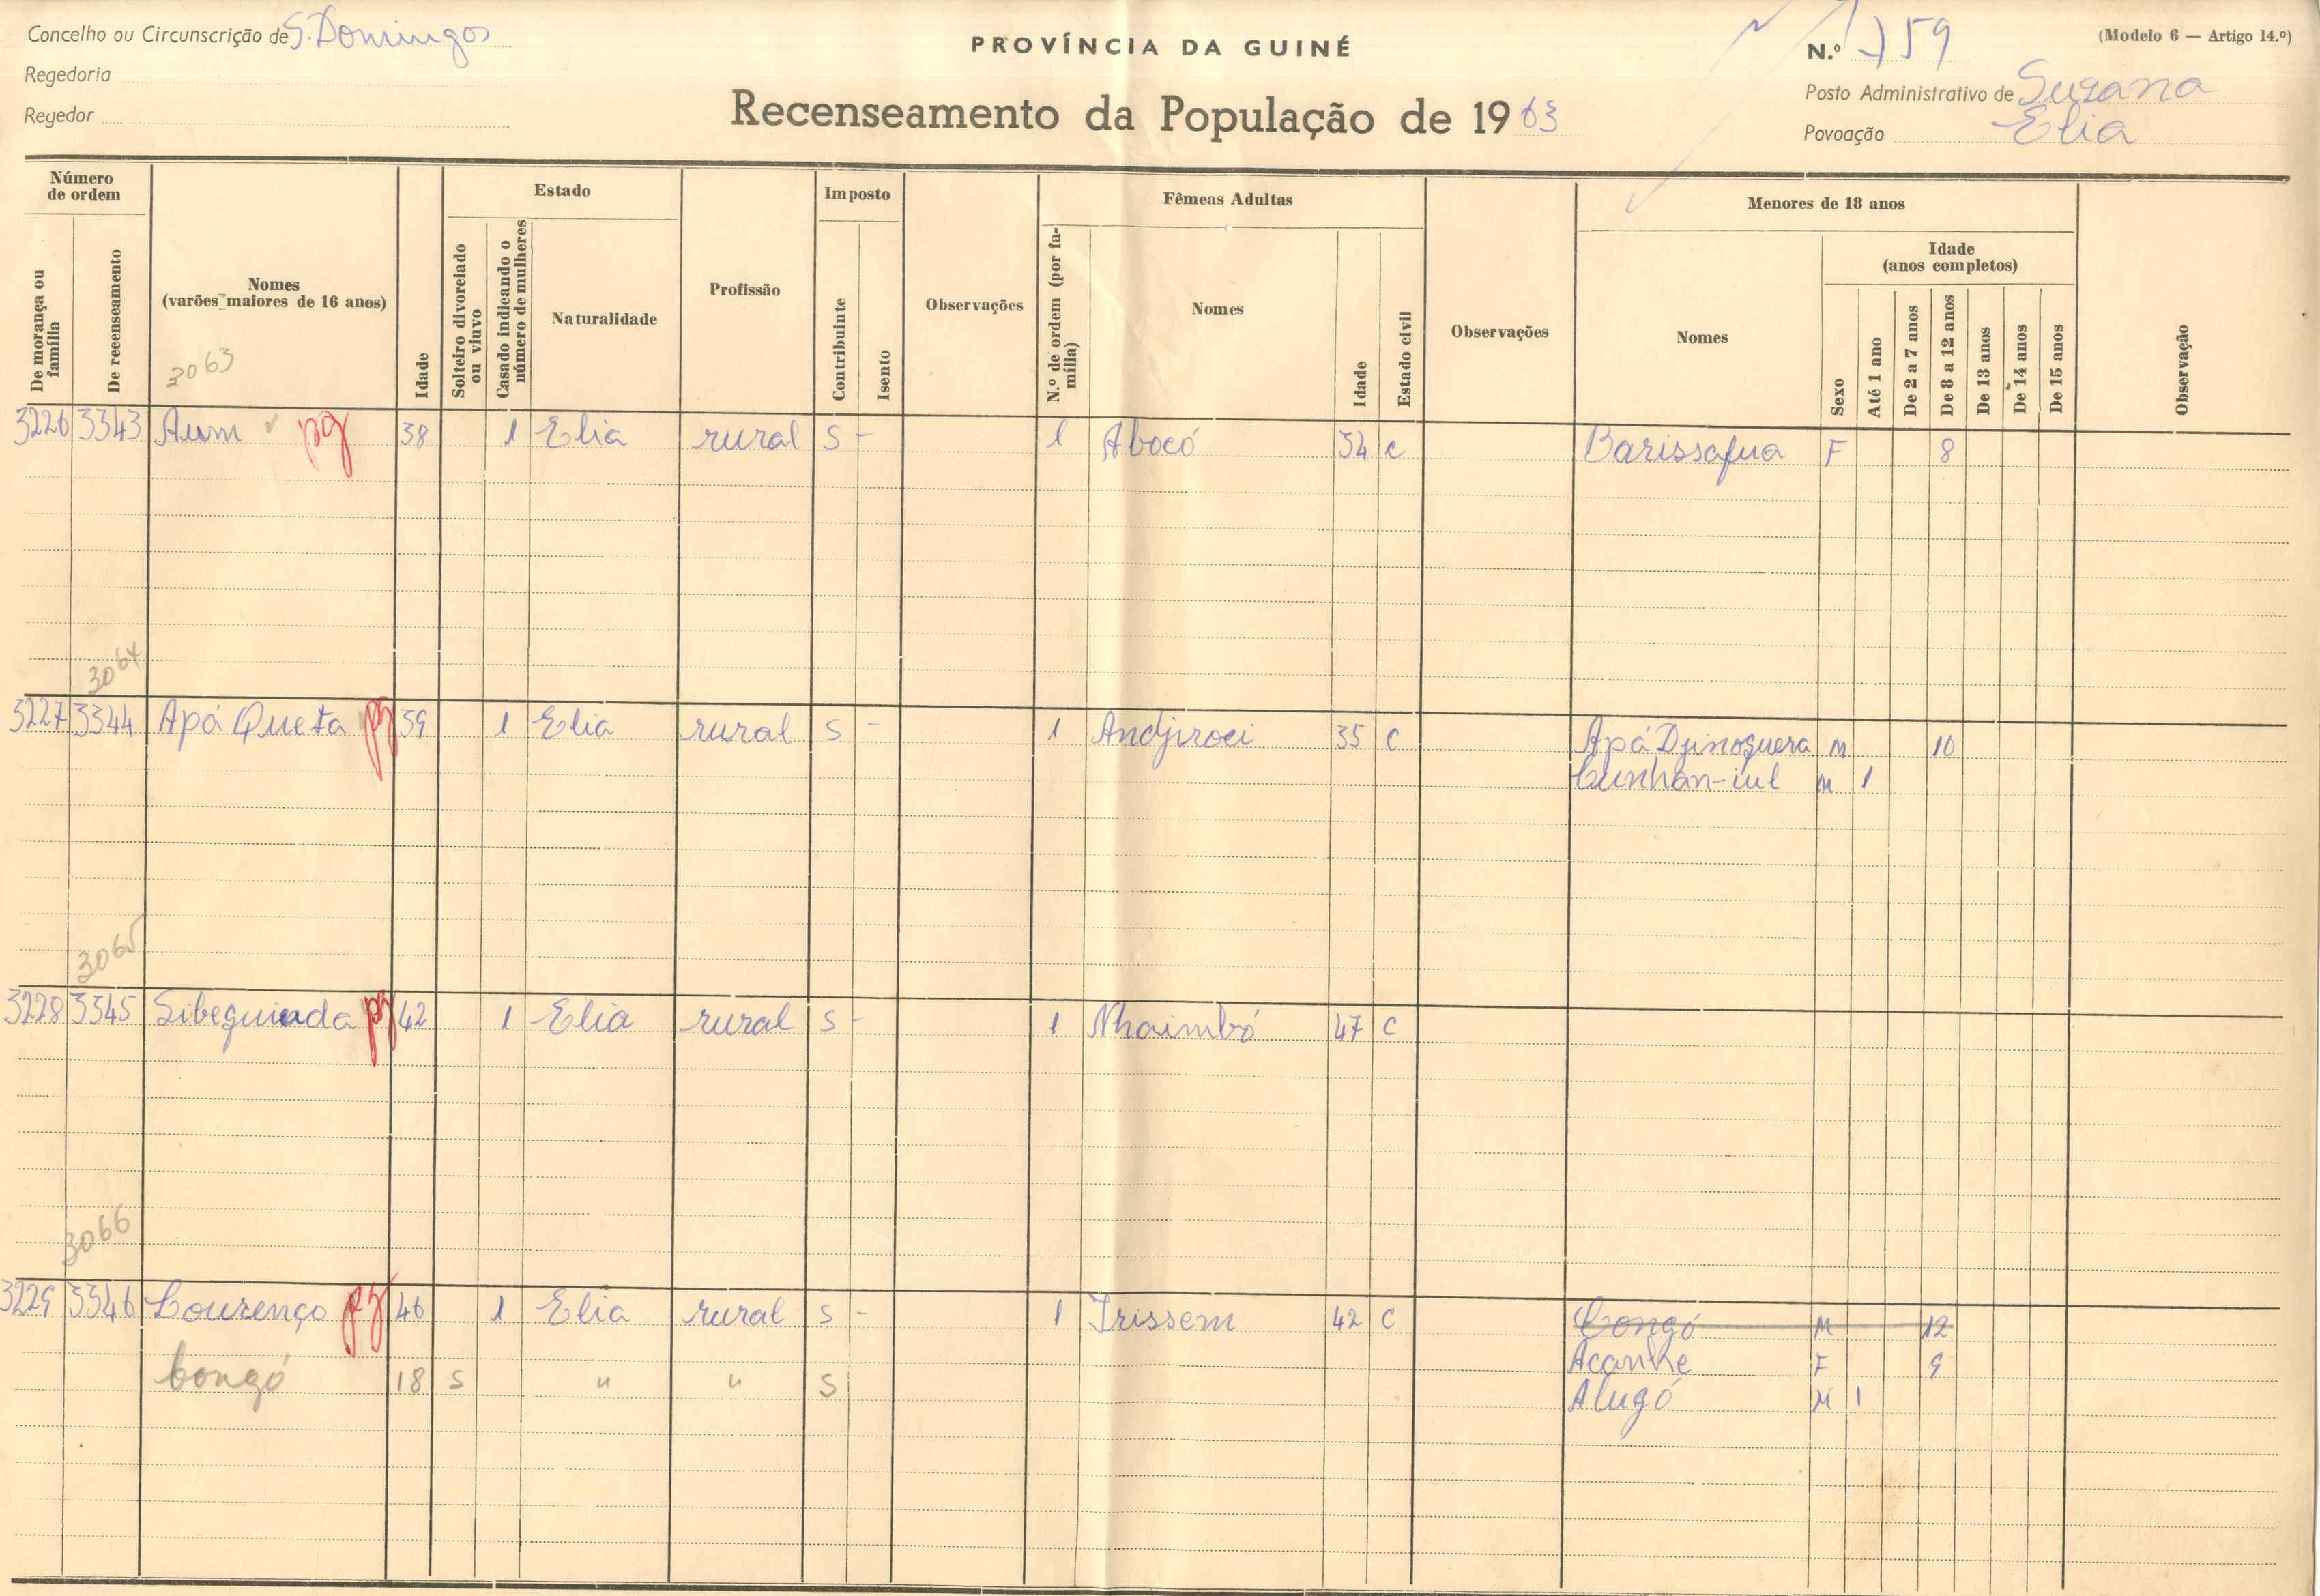 Concelho ou Circunscrição de S. Domingos
Regedoria
Regedor
PROVÍNCIA DA GUINÉ
Recenseamento da População de 1963
N.º 759
(Modelo 6 — Artigo 14.º)
Posto Administrativo de Suzana
Povoação Elia
Número de ordem
De morança ou família
De recenseamento
Nomes
(varões maiores de 16 anos)
3063
Idade
Estado
Solteiro divorciado ou viuvo
Casado indicando o número de mulheres
Naturalidade
Profissão
Imposto
Contribuinte
Isento
Observações
Fêmeas Adultas
N.º de ordem (por família)
Nomes
Idade
Estado civil
Observações
Menores de 18 anos
Nomes
Sexo
Idade
(anos completos)
Até 1 ano
De 2 a 7 anos
De 8 a 12 anos
De 13 anos
De 14 anos
De 15 anos
Observação
3226 3343 Aum pg 38 1 Elia rural S - 1 Abocó 34 C Barissafua F 8
3064
3227 3344 Apá Queta pg 39 1 Elia rural S - 1 Andjiroei 35 C Apá Djinoguera M 10
Cunhan-iul M 1
3065
3228 3345 Sibequiada pg 42 1 Elia rural S - 1 Nhaimbó 47 C
3066
3229 3346 Lourenço pg 46 1 Elia rural S - 1 Irissem 42 C Congó M 12
Acanhe F 9
Congó 18 S " " S
Alugó M 1